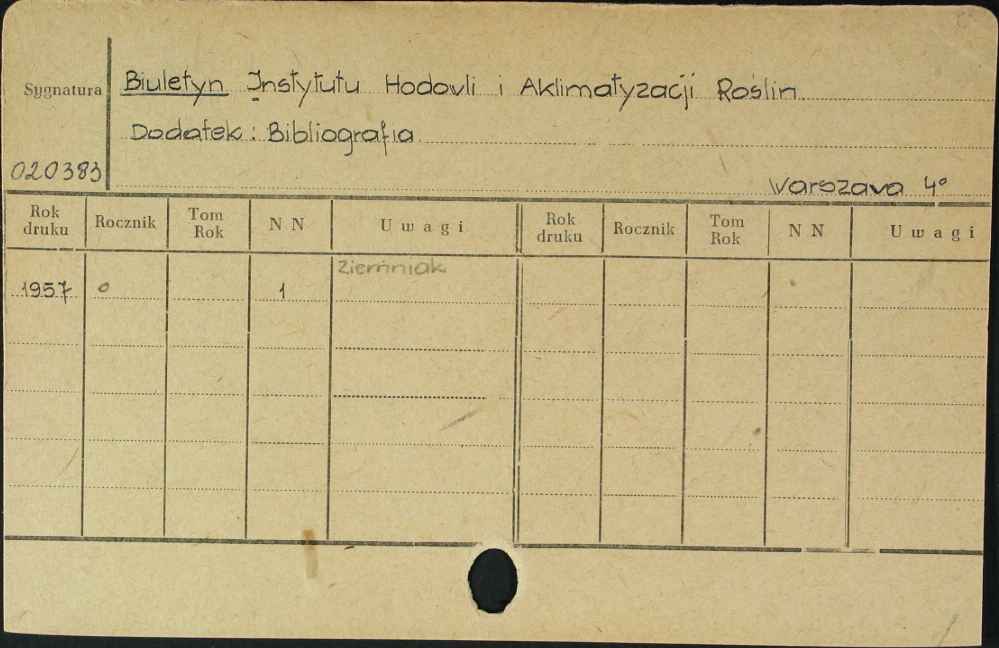 Sygnatura
Biuletyn Instytutu Hodowli i Aklimatyzacji Roślin
Dodatek: Bibliografia
020383
Warszawa 4°
Rok druku Rocznik Tom Rok N N Uwagi Rok druku Rocznik Tom Rok N N Uwagi
Ziemniak
1957 o 1